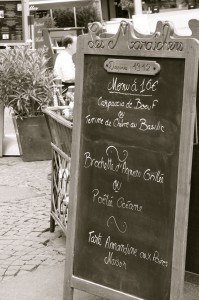 Les Maraichers
Menu à 16€
Carpaccio de Boeuf
ou
Terrine de Chèvre au Basilic
Brochette d'Agneau Grillée
ou
Poêlée Océane
Tarte Amandine aux Poires
Maison